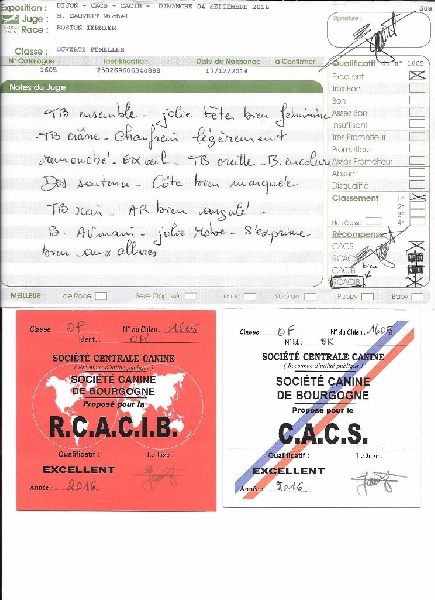 Exposition : DIJON - CACS - CACIB - DIMANCHE 04 SEPTEMBRE 2016
Juge : M. Michel
Race : BOSTON TERRIER
Signature :
Classe : OUVERTE FEMELLES
N° Catalogue Identification Date de Naissance à Confirmer
1605 17/12/2014
Qualificatif : n° 1605
Notes du Juge
Excellent
Très Bon
Bon
Assez Bon
Insuffisant
Très Prometteur
Prometteur
Assez Prometteur
Absent
Disqualifié
Classement
1er
2e
3e
4e
Récompense
CACS
RCACS
CACIB
RCACIB
TB ensemble - jolie tête bien féminine
TB crâne - Chanfrein légèrement
remouché. Ex œil - TB oreille - B. encolure
Dos soutenu - Côte bien marquée
TB rein - AR bien angulé -
B. jolie robe - S'exprime
bien aux allures
MEILLEUR de Race Sexe Opposé Jeune Vétéran Puppy Baby
Classe : OF N° du Chien : 1605
Ident. :
SOCIÉTÉ CENTRALE CANINE
(Reconnue d'utilité publique)
SOCIÉTÉ CANINE
DE BOURGOGNE
Proposé pour le
R.C.A.C.I.B.
Qualificatif : Le Juge :
EXCELLENT
Année : 2016
Classe : OF N° du Chien : 1605
N° Id. : OK
SOCIÉTÉ CENTRALE CANINE
(Reconnue d'utilité publique)
SOCIÉTÉ CANINE
DE BOURGOGNE
Proposé pour le
C.A.C.S.
Qualificatif : Le Juge :
EXCELLENT
Année : 2016